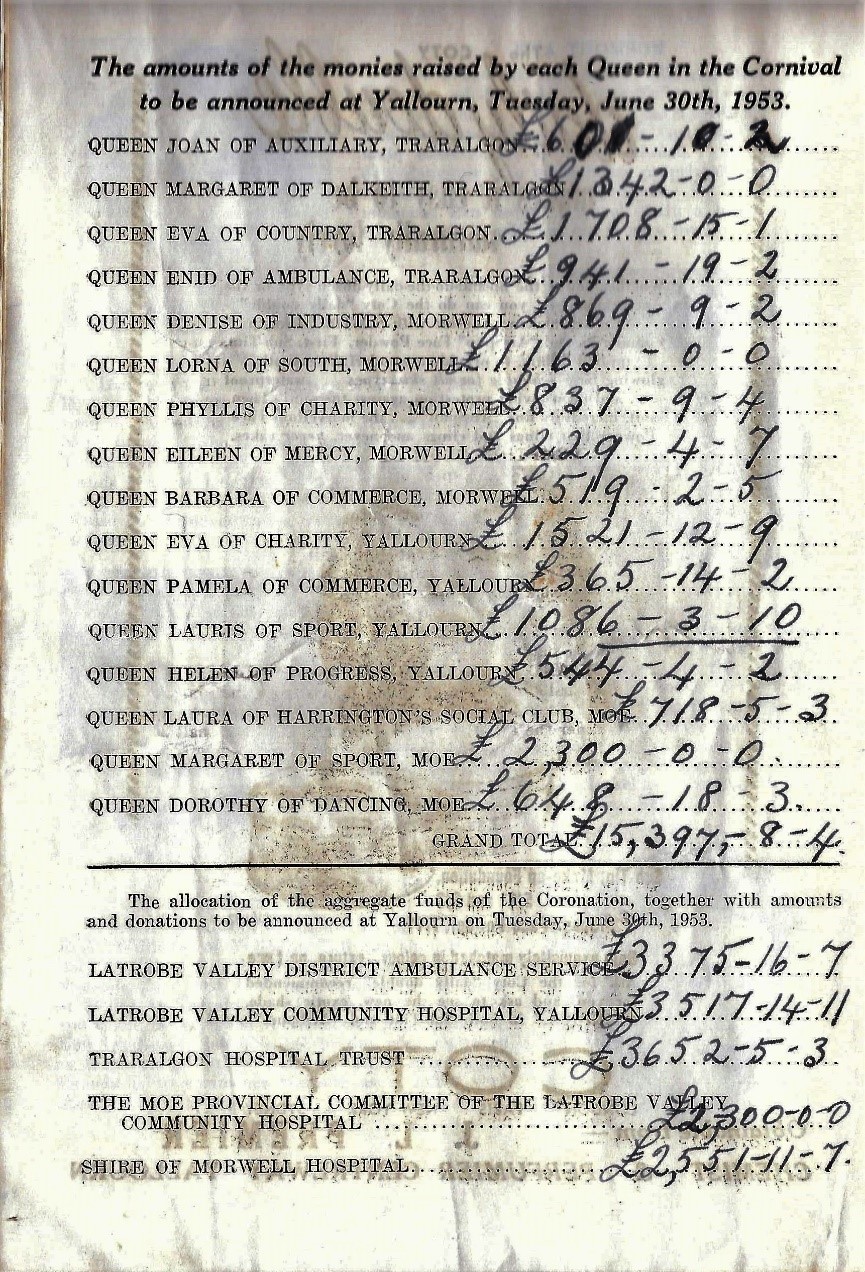 The amounts of the monies raised by each Queen in the Cornival
to be announced at Yallourn, Tuesday, June 30th, 1953.
QUEEN JOAN OF AUXILIARY, TRARALGON £601-10-2
QUEEN MARGARET OF DALKEITH, TRARALGON £1342-0-0
QUEEN EVA OF COUNTRY, TRARALGON £1708-15-1
QUEEN ENID OF AMBULANCE, TRARALGON £941-19-2
QUEEN DENISE OF INDUSTRY, MORWELL £869-9-2
QUEEN LORNA OF SOUTH, MORWELL £1163-0-0
QUEEN PHYLLIS OF CHARITY, MORWELL £837-9-4
QUEEN EILEEN OF MERCY, MORWELL £229-4-7
QUEEN BARBARA OF COMMERCE, MORWELL £519-2-5
QUEEN EVA OF CHARITY, YALLOURN £1521-12-9
QUEEN PAMELA OF COMMERCE, YALLOURN £365-14-2
QUEEN LAURIS OF SPORT, YALLOURN £1086-3-10
QUEEN HELEN OF PROGRESS, YALLOURN £544-4-2
QUEEN LAURA OF HARRINGTON'S SOCIAL CLUB, MOE £718-5-3
QUEEN MARGARET OF SPORT, MOE £2,300-0-0
QUEEN DOROTHY OF DANCING, MOE £648-18-3
GRAND TOTAL £15,397-8-4.
The allocation of the aggregate funds of the Coronation, together with amounts
and donations to be announced at Yallourn on Tuesday, June 30th, 1953.
LATROBE VALLEY DISTRICT AMBULANCE SERVICE £3375-16-7
LATROBE VALLEY COMMUNITY HOSPITAL, YALLOURN £3517-14-11
TRARALGON HOSPITAL TRUST £3652-5-3
THE MOE PROVINCIAL COMMITTEE OF THE LATROBE VALLEY
COMMUNITY HOSPITAL £2,300-0-0
SHIRE OF MORWELL HOSPITAL £2,551-11-7.